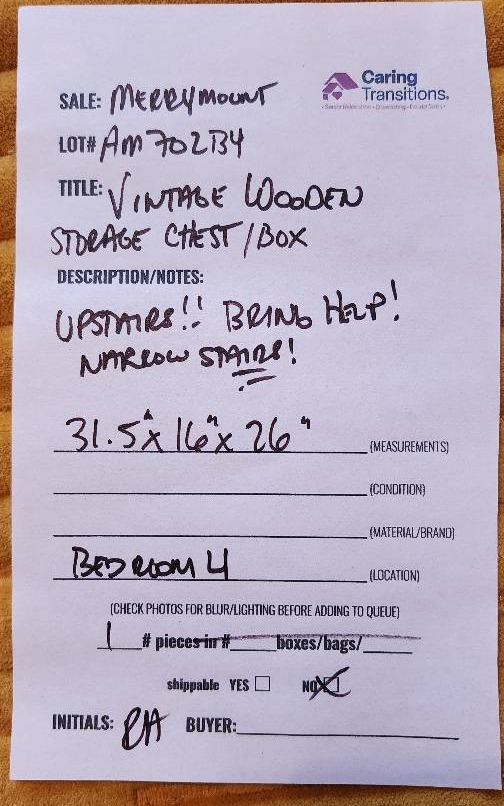 Caring
Transitions.
SALE: MERRYMOUNT
LOT# AM702B4
TITLE: VINTAGE WOODEN
STORAGE CHEST/BOX
DESCRIPTION/NOTES:
UPSTAIRS!! BRING HELP!
NARROW STAIRS!
31.5" x 16" x 26" (MEASUREMENTS)
(CONDITION)
(MATERIAL/BRAND)
BEDROOM 4 (LOCATION)
(CHECK PHOTOS FOR BLUR/LIGHTING BEFORE ADDING TO QUEUE)
1 # pieces in #____boxes/bags/____
shippable YES ☐ NO ☒
INITIALS: BUYER: